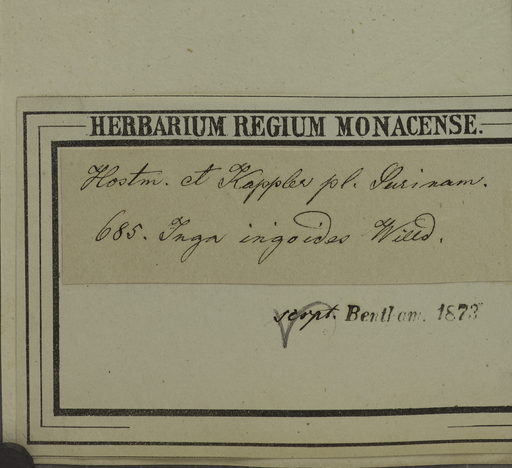 HERBARIUM REGIUM MONACENSE.
Hostm. et Kappler pl. Surinam.
685. Inga ingoides Willd.
scrpt. Bentham. 1873